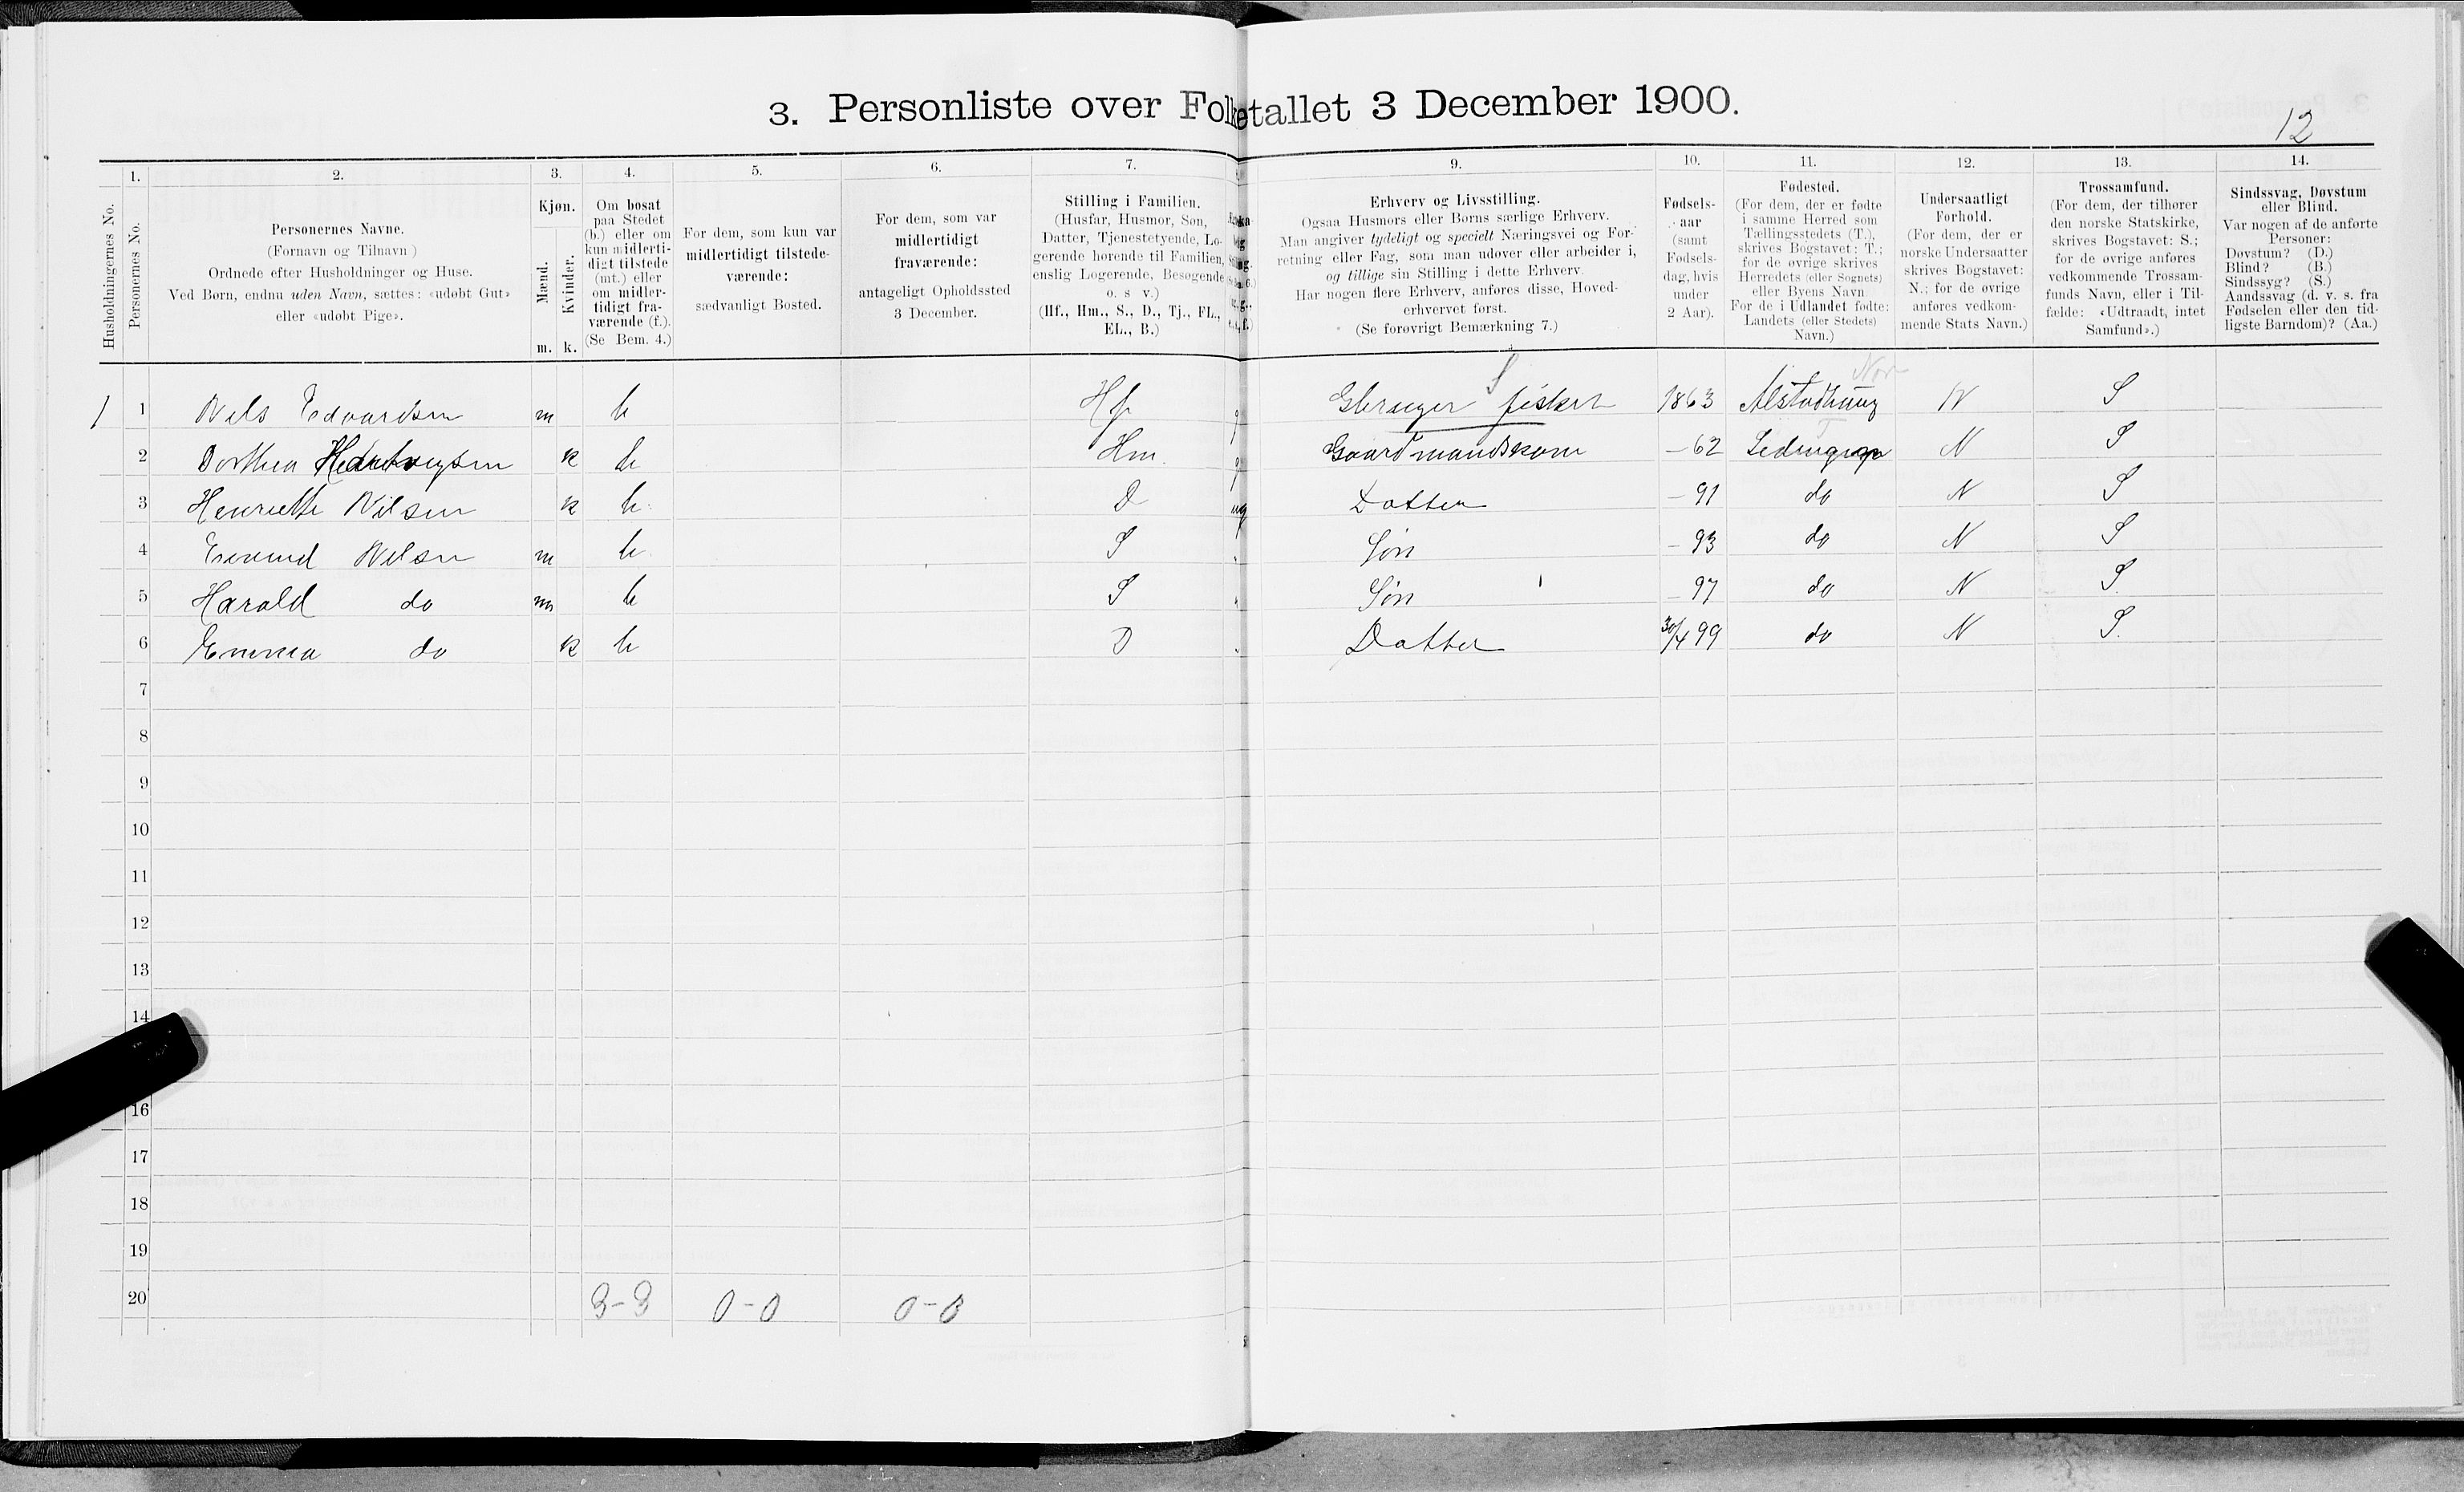 3. Personliste over Folketallet 3 December 1900.
12
1. 2. 3. 4. 5. 6. 7. 9. 10. 11. 12. 13. 14.
Husholdningernes No.
Personernes No.
Personernes Navne.
(Fornavn og Tilnavn )
Ordnede efter Husholdninger og Huse.
Ved Børn, endnu uden Navn, sættes: «udøbt Gut»
eller «udøbt Pige».
Kjøn.
Mænd.
Kvinder.
m. k.
Om bosat
paa Stedet
(b.) eller om
kun midlerti-
digt tilstede
(mt.) eller
om midler-
tidigt fra-
værende (f.).
(Se Bem. 4.)
For dem, som kun var
midlertidigt tilstede-
værende:
sædvanligt Bosted.
For dem, som var
midlertidigt
fraværende:
antageligt Opholdssted
3 December.
Stilling i Familien.
(Husfar, Husmor, Søn,
Datter, Tjenestetyende, Lo-
gerende hørende til Familien,
enslig Logerende, Besøgende
o. s v.)
(Hf., Hm., S., D., Tj., FL.,
EL., B.)
Erhverv og Livsstilling.
Ogsaa Husmors eller Børns særlige Erhverv.
Man angiver tydeligt og specielt Næringsvei og For-
retning eller Fag, som man udøver eller arbeider i,
og tillige sin Stilling i dette Erhverv.
Har nogen flere Erhverv, anføres disse, Hoved-
erhvervet først.
(Se forøvrigt Bemærkning 7.)
Fødsels-
aar
(samt
Fødsels-
dag, hvis
under
2 Aar).
Fødested.
(For dem, der er fødte
i samme Herred som
Tællingsstedets (T.),
skrives Bogstavet: T.;
for de øvrige skrives
Herredets (eller Sognets)
eller Byens Navn
For de i Udlandet fødte:
Landets (eller Stedets)
Navn.)
Undersaatligt
Forhold.
(For dem, der er
norske Undersaatter
skrives Bogstavet:
N.; for de øvrige
anføres vedkom-
mende Stats Navn.)
Trossamfund.
(For dem, der tilhører
den norske Statskirke,
skrives Bogstavet: S.;
for de øvrige anføres
vedkommende Trossam-
funds Navn, eller i Til-
fælde: «Udtraadt, intet
Samfund».)
Sindssvag, Døvstum
eller Blind.
Var nogen af de anførte
Personer:
Døvstum? (D.)
Blind? (B.)
Sindssyg? (S.)
Aandssvag (d. v. s. fra
Fødselen eller den tid-
ligste Barndom)? (Aa.)
1 1 Nils Edvardsen m b Hf g fisker 1863 Alstadhaug N S
2 Dorthea k b Hm g Gaardmandskone – 62 N S
3 Henriette Nilsen k b. D ug Datter – 91 do N S
4 Nilsen m b. S Søn – 93 do N S
5 Harald do m b S Søn – 97 do N S.
6 Emma do k b D Datter 30/4 99 do N S.
7
8
9
10
11
12
13
14
16
17
18
19
20 3–3 0–0 0–0